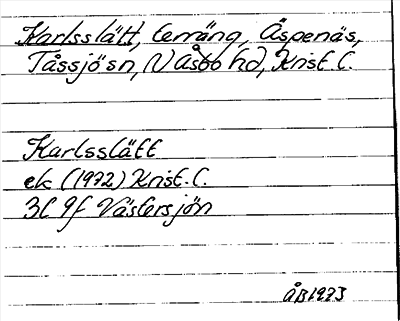 Karlsslätt, terräng, Äspenäs,
Tåssjö sn, N Åsbo hd, Krist. l.
Karlsslätt
ek (1972) Krist. l.
3C 9f Västersjön
ÅB 1973